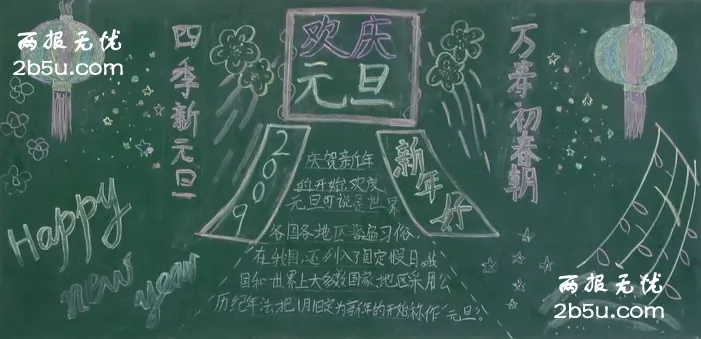 两报无忧
2b5u.com
四季新元旦
欢庆
元旦
万寿初春朝
2009
新年好
庆贺新年
的开始,欢度
元旦可说是世界
各国各地区普遍习俗,
在我国,还列入了固定假日。我
国和世界上大多数国家、地区采用公
历纪年法,把1月1日定为新年的开始称作"元旦"。
Happy
new
year
两报无忧
2b5u.com